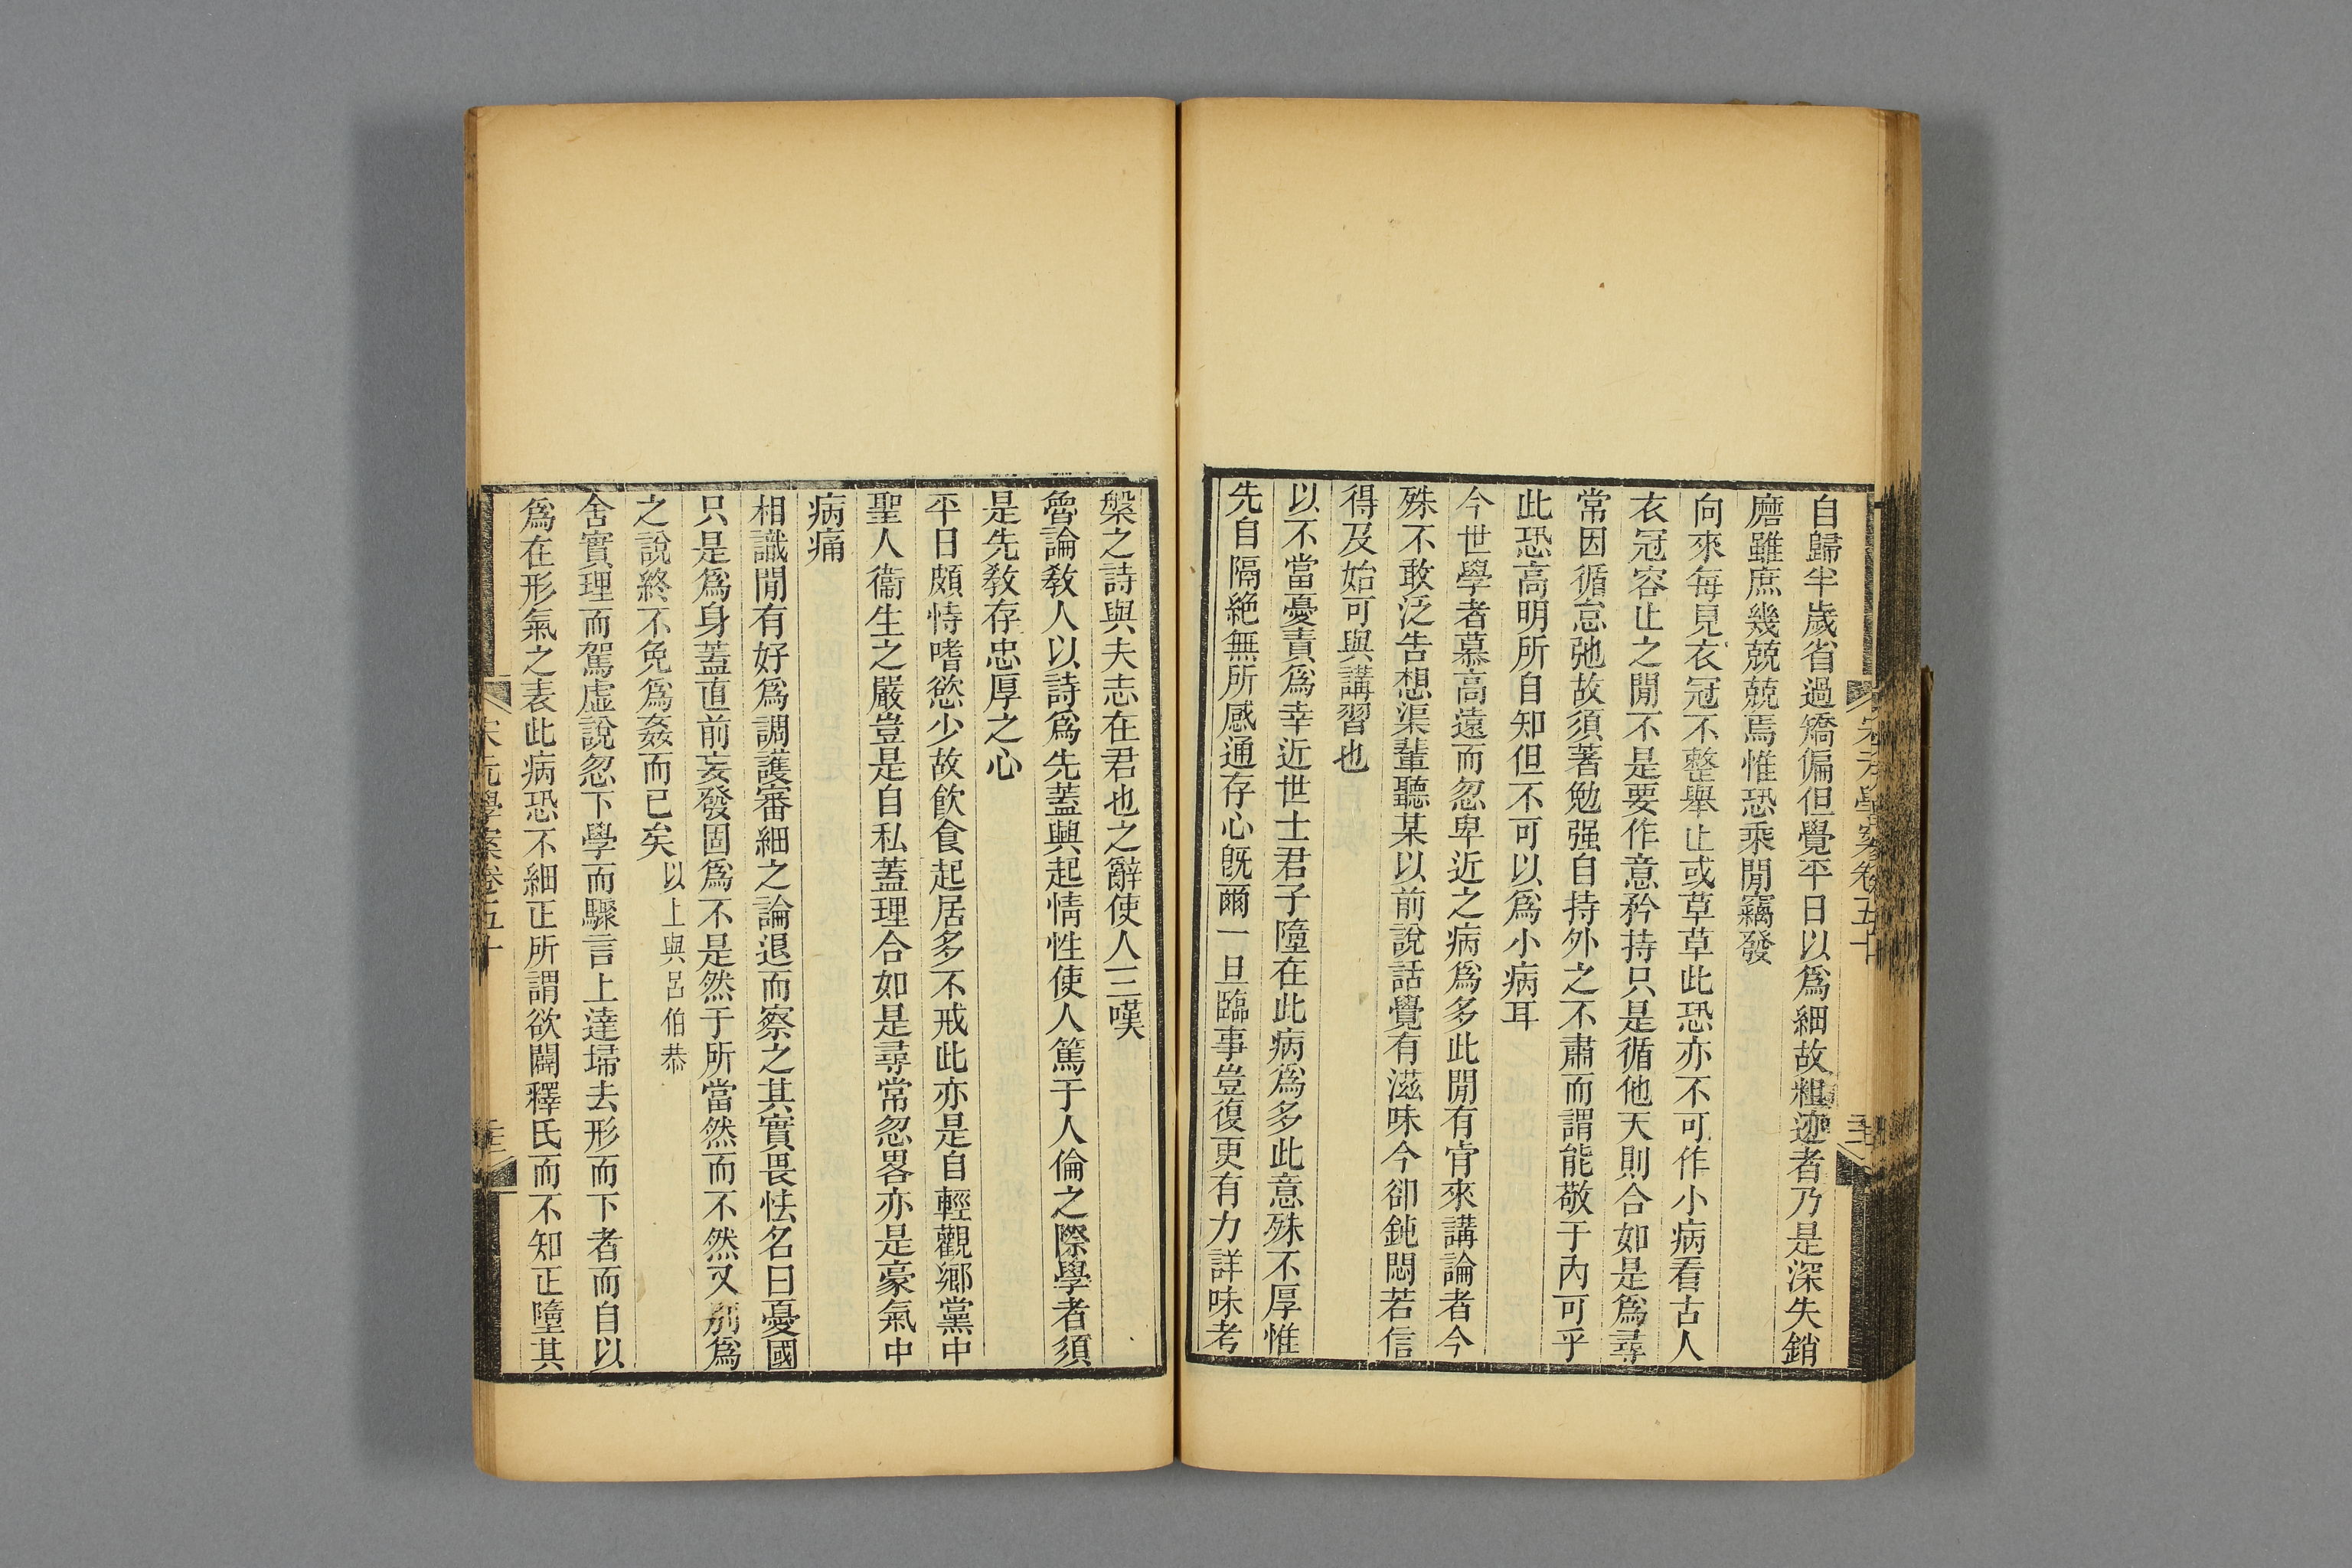 自歸半歲省過矯偏但覺平日以爲細故粗迹者乃是深失銷
磨雖庶幾兢兢焉惟恐乘閒竊發
向來每見衣冠不整舉止或草草此恐亦不可作小病看古人
衣冠容止之閒不是要作意矜持只是循他天則合如是爲尋
常因循怠弛故須著勉强自持外之不肅而謂能敬于內可乎
此恐高明所自知但不可以爲小病耳
今世學者慕高遠而忽卑近之病爲多此閒有肯來講論者今
殊不敢泛告想渠輩聽某以前說話覺有滋味今卻鈍悶若信
得及始可與講習也
以不當憂責爲幸近世士君子墮在此病爲多此意殊不厚惟
先自隔絶無所感通存心旣爾一旦臨事豈復更有力詳味考
槃之詩與夫志在君也之辭使人三嘆
魯論敎人以詩爲先蓋興起情性使人篤于人倫之際學者須
是先敎存忠厚之心
平日頗恃嗜慾少故飮食起居多不戒此亦是自輕觀鄉黨中
聖人衞生之嚴豈是自私蓋理合如是尋常忽畧亦是豪氣中
病痛
相識閒有好爲調護審細之論退而察之其實畏怯名曰憂國
只是爲身蓋直前妄發固爲不是然于所當然而不然又別爲
之說終不免爲姦而已矣以上與呂伯恭
舍實理而駕虛說忽下學而驟言上達埽去形而下者而自以
爲在形氣之表此病恐不細正所謂欲闢釋氏而不知正墮其
宋元學案卷五十